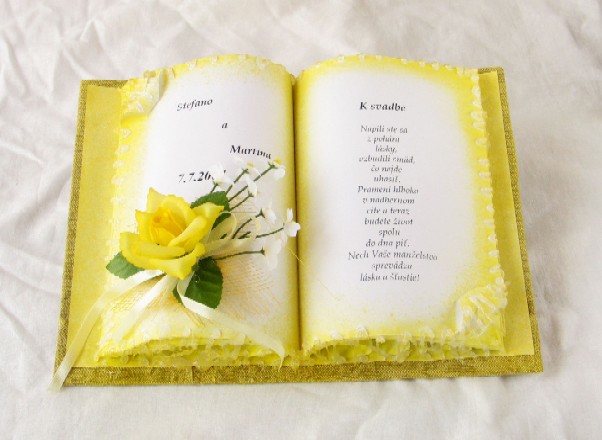 Stefano
a
Martina
7.7.20
K svadbe
Napili ste sa
z pohára
lásky,
vzbudili smäd,
čo nejde
uhasiť.
Prameni hlboko
v nádhernom
cite a teraz
budete život
spolu
do dna piť.
Nech Vaše manželstvo
sprevádza
láska a šťastie!